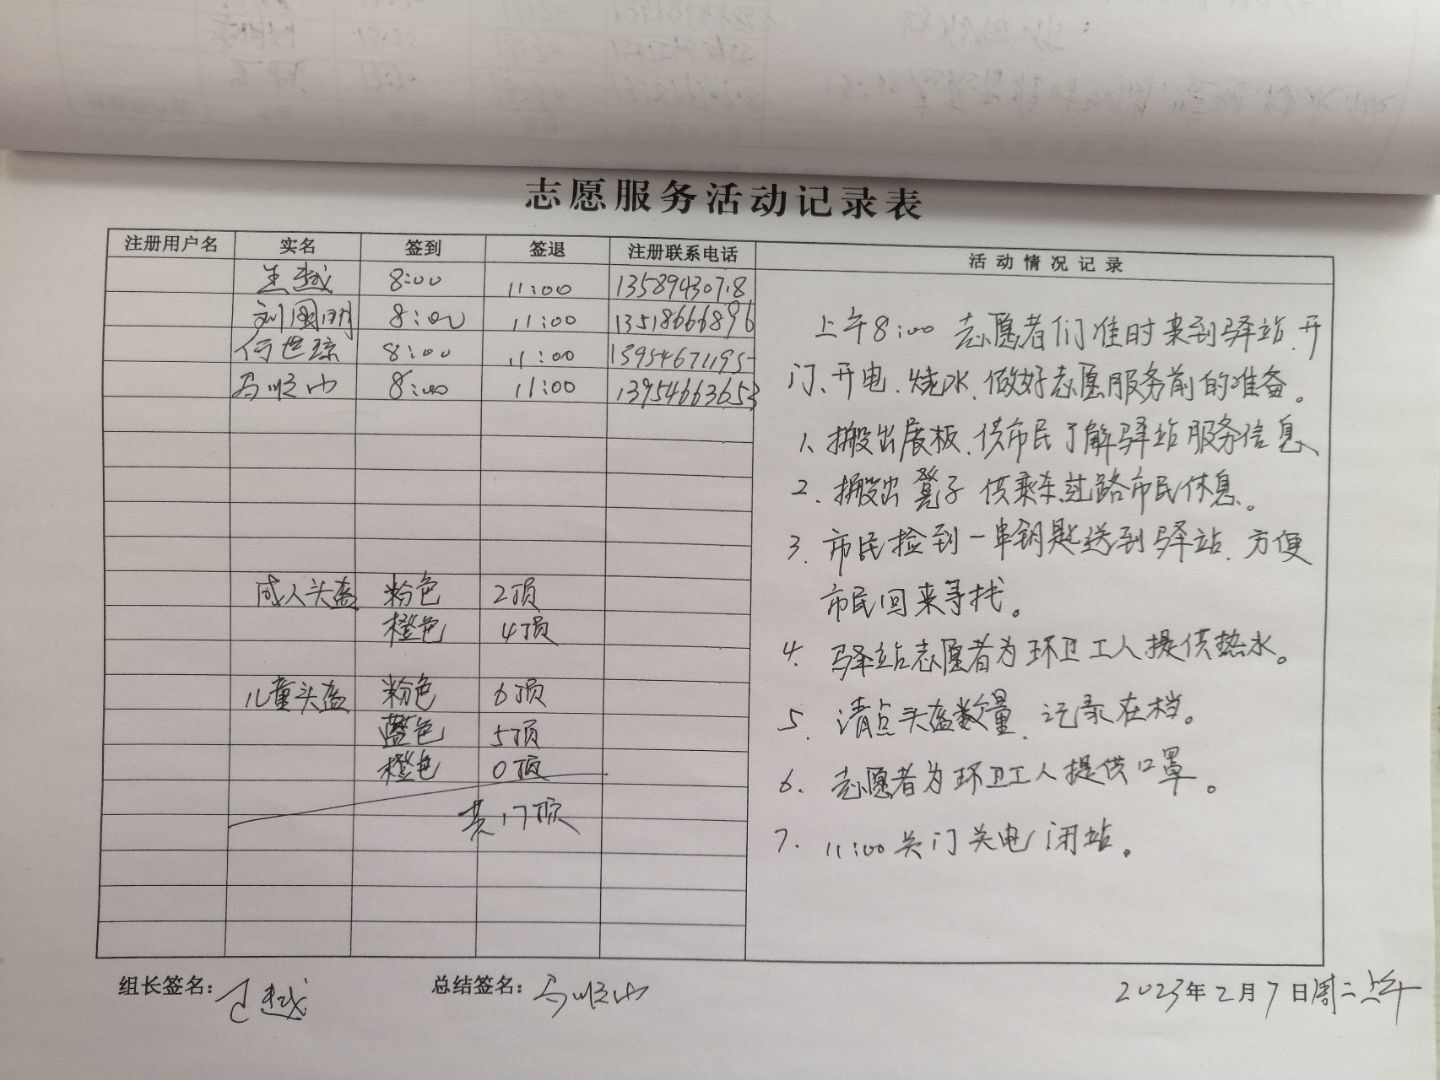 志愿服务活动记录表
注册用户名 实名 签到 签退 注册联系电话 活动情况记录
王越 8:00 11:00 13589430718
刘国明 8:00 11:00 13518666896
何世琼 8:00 11:00 13954671195
马顺山 8:00 11:00 13954663653
成人头盔 粉色 2顶
橙色 4顶
儿童头盔 粉色 6顶
蓝色 5顶
橙色 0顶
共17顶
上午8:00 志愿者们准时来到驿站、开
门、开电、烧水、做好志愿服务前的准备。
1、搬出展板、供市民了解驿站服务信息、
2、搬出凳子 供乘车过路市民休息。
3、市民捡到一串钥匙送到驿站、方便
市民回来寻找。
4、驿站志愿者为环卫工人提供热水。
5、清点头盔数量、记录在档。
6、志愿者为环卫工人提供口罩。
7、11:00关门关电闭站。
组长签名：王越 总结签名：马顺山 2023年2月7日周二上午